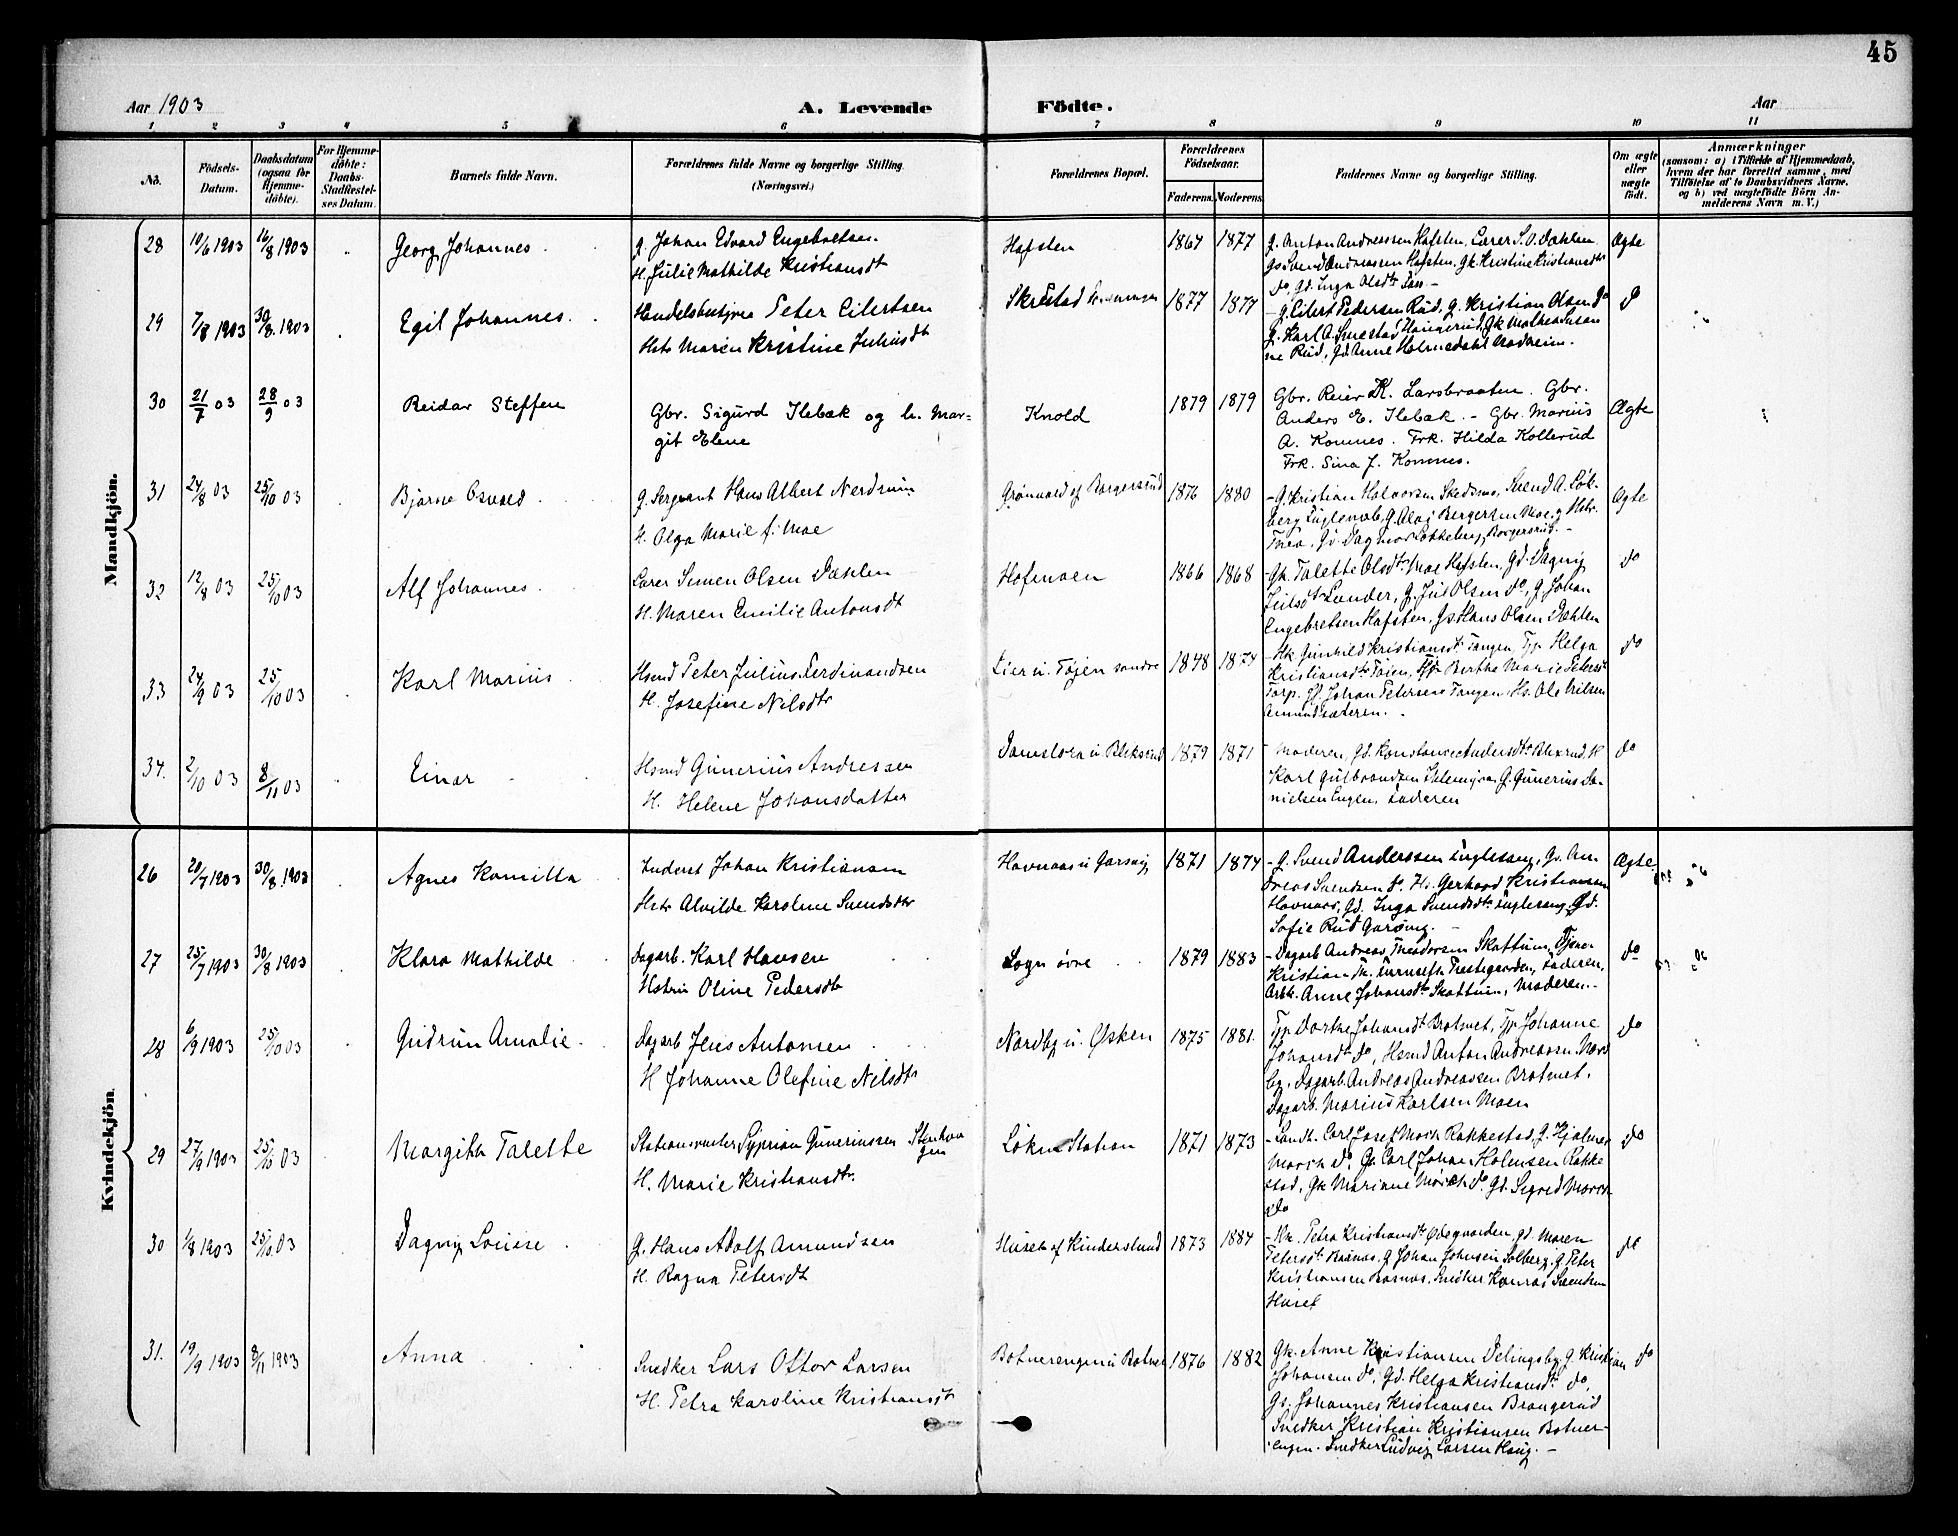 45
Aar 1903
A. Levende
Födte.
Aar
1 2 3 4 5 6 7 8 9 10 11
No.
Födsels-
Datum.
Daabsdatum
(ogsaa for
Hjemme-
döbte).
For Hjemme-
döbte:
Daabs-
Stadfæstel-
ses Datum.
Barnets fulde Navn.
Forældrenes fulde Navne og borgerlige Stilling.
(Næringsvei.)
Forældrenes Bopæl.
Forældrenes
Födselsaar.
Faderens.
Moderens.
Faddernes Navne og borgerlige Stilling.
Om ægte
eller
uægte
födt.
Anmærkninger
(saasom: a) i Tilfælde af Hjemmedaab,
hvem der har forrettet samme, med
Tilföielse af to Daabsvidners Navne,
og b) ved uægtefödte Börn An-
melderens Navn m. V.)
Mandkjön.
28 10/6 1903 16/8 1903 Georg Johannes
g. Johan Edvard Engebretsen
H. Julie Mathilde Kristiansdt
Hafsten 1867 1877
g. Anton Andreassen Hafsten, Lærer S. O. Dæhlin
Gs Svend Andreassen Hafsten, Gk. Kristine Kristiansdtr
do, Gd. Inga Olsdtr
Ægte
29 7/8 1903 30/8 1903 Egil Johannes
Handelsbestyrer Peter Eilertsen
Hstr Maren Kristine Juliusdt
Skrestad 1877 1877
g. Eilert Pedersen Rud, g. Kristian Olsen do
g. Karl A. Smestad Haugerud, Gk Mathea Susan
ne Rud, Gd. Anne Holmedahl
do
30 21/7 03 28/9 03 Reidar Steffen
Gbr. Sigurd Ilebæk og h. Mar-
git Elene
Knold 1879 1879
Gbr. Reier K. Larsbraaten. Gbr.
Anders E. Ilebæk. - Gbr. Marius
A. Komnes. Frk. Hilda Kollerud
Frk. Sina J. Komnes.
Ægte
31 24/8 03 25/10 03 Bjarne Osvald
g. Sergeant Hans Albert Nerdrum
H. Olga Marie f. Moe
Grønvold af Borgersrud 1876 1880
- G. Kristian Halvorsen Skedsmo, Svend A. Løk-
berg, G. Olaf Bergersen Moe, g Hstr.
Thea, Gd. Dagmar Løkkeberg, Borgersrud. -
Ægte
32 12/8 03 25/10 03 Alf Johannes
Lærer Simen Olsen Dæhlen
H. Maren Emilie Antonsdt
Hofmoen 1866 1868
- Gk. Talette Olsdtr Moe Hafsten, Gd. Dagny
Lunder, G. Jul Olsen do, G. Johan
Engebretsen Hafsten, Gs. Hans Olsen Dæhlen
do
33 24/9 03 25/10 03 Karl Marius
Hsmd Peter Julius Ferdinandsen
H. Josefine Nilsdtr
Lier u. Tøjen søndre 1848 1874
- Hk Gunhild Kristiansdt. Tangen, Tjp. Helga
Kristiansdtr Tøien, Tjp. Berthe Marie Petersdt
Torp, G. Johan Petersen Tangen, Hs. Ole Nilsen
Amundsæteren.
do
34. 2/10 03 8/11 03 Einar
Hsmd Gunerius Andressen
H. Helene Johansdatter
u Bliksrud 1879 1871
- Moderen, Gd. Konstance Andersdtr Blixrud, H
Karl Gulbrandsen, G. Gunerius Da-
nielsen Engen, Faderen
do
Kvindekjön.
26 20/7 1903 30/8 1903 Agnes Kamilla
Inderst Johan Kristiansen
Hstr Alvilde Karoline Svendsdtr
Havnaas u Garsvig 1871 1874
- G. Svend Anderssen Fuglesang, Gs. An-
dreas Svendsen do. Hs. Gerhard Kristiansen
Havnaas, Gd. Inga Svendsdtr. Fuglesang, Gd.
Sofie Rud Garsvig. -
Ægte
27 25/7 1903 30/8 1903 Klara Mathilde
Dagarb. Karl Hansen
Hstru Oline Pedersdt
Sogn øvre 1879 1883
- Dagarb Andreas Theodorsen Skattum, Tjener
Kristian Prestegaarden, Faderen,
Arbk. Anne Johansdt. Skattum, Moderen. -
do
28 6/9 1903 25/10 03 Gudrun Amalie
Dagarb Jens Antonsen
H Johanne Olefine Nilsdtr
Nordby u. Øsken 1875 1881.
Tjp Dorthe Johansdt Bratvet, Tjp Johanne
Johansdt do, Hsmd Anton Andreassen Nord
by, Dagarb. Andreas Andreassen Bratvet,
Dagarb. Marius Karlsen Moen
do
29 27/9 1903 25/10 03 Margith Talette
Stationsmester Syprian Gunerinssen
H. Marie Kristiansdtr.
Løken Station 1871 1873
- Landh. Carl Josef Mork Rakkestad, G. Hjalmar
Morck do, Gs. Carl Johan Holmsen Rakke
stad, Gk Mariane Mørck do. Gd. Sigrid Morck
do
do
30 1/8 1903 25/10 03 Dagny Louise
G. Hans Adolf Amundsen
H. Ragna Petersdt
Huset af Kinderslund 1873 1884
- Petra Kristiansdt. Ødegaarden, Gd. Maren
Petersdt. Raanas, G Johan Johnsen Solberg, G Peter
Kristiansen Raanas, Snedker Konrad Svendsen
Huset
do
31. 19/9 1903 8/11 1903 Anna
Snedker Lars Ottar Larsen
H. Petra Karoline Kristiansdt
Botnerengen u Botner 1876 1882
Gk. Anne Kristiansen Delingsby, G. Kristian
Johansen do, Gd. Helga Kristiansdt. do,
Gs. Johannes Kristiansen Brangerud
Snedker Kristian Kristiansen Botner-
engen. Snedker Ludvig Larsen Haug. -
do